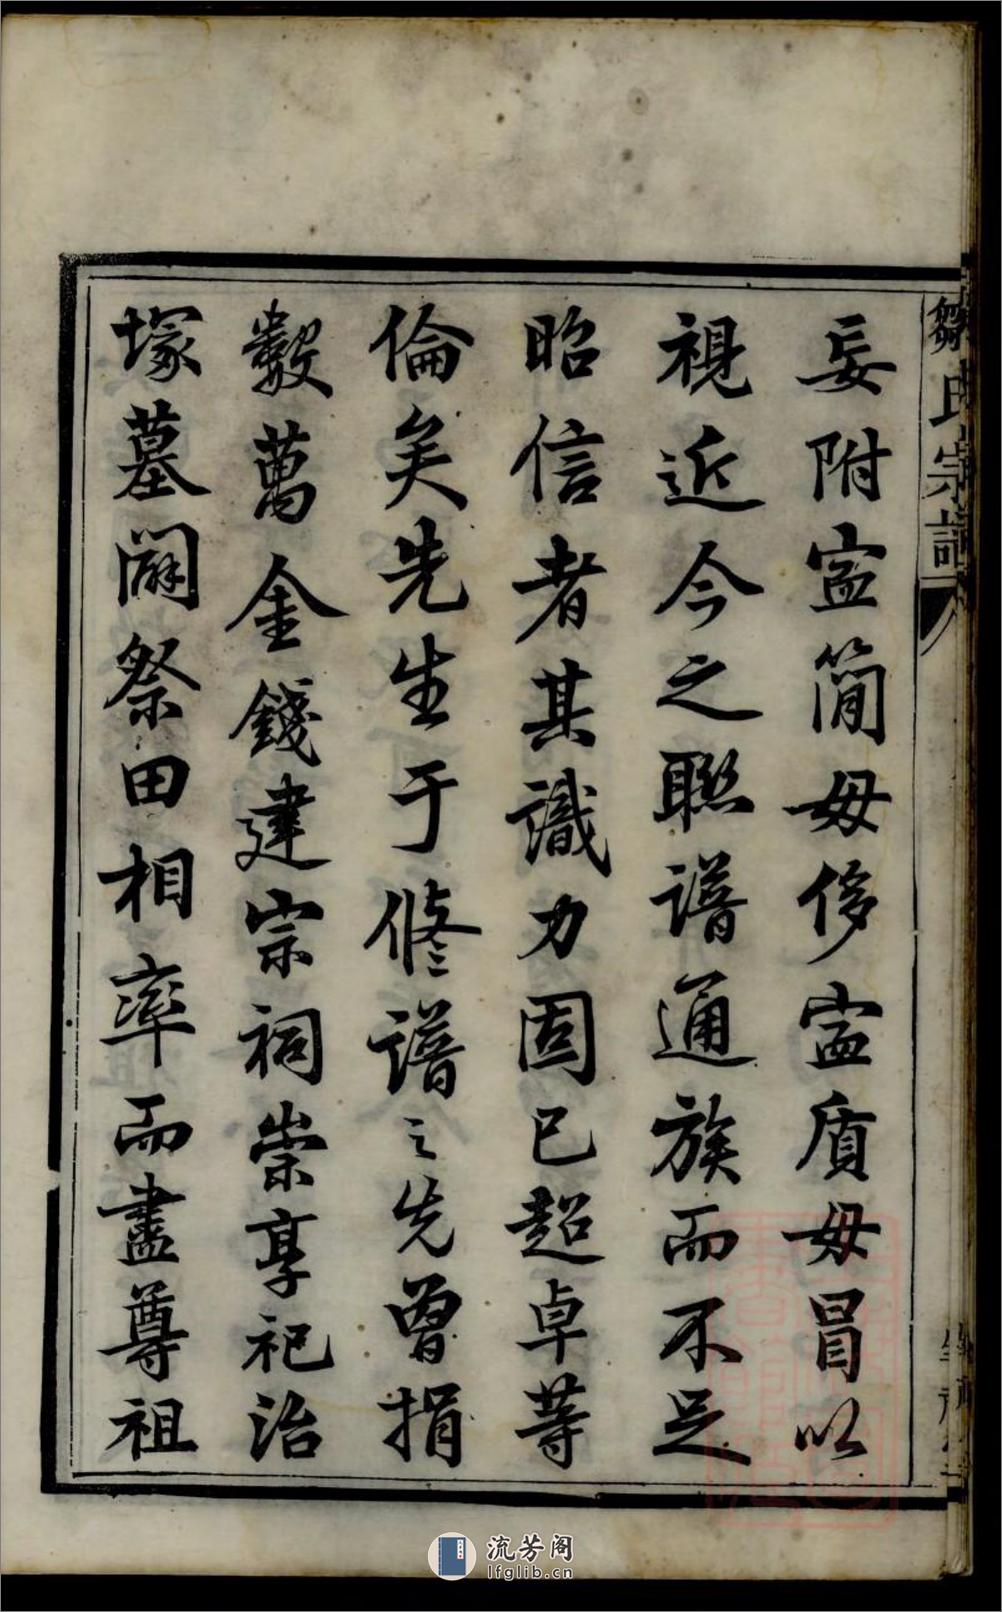 鄒氏宗譜
妄附寧簡毋侈寧質毋冒以
視近今之聯譜通族而不足
昭信者其識力固已超卓等
倫矣先生于修譜之先曾捐
數萬金錢建宗祠崇享祀治
塚墓闢祭田相率而盡尊祖
流芳阁
lfglib.cn